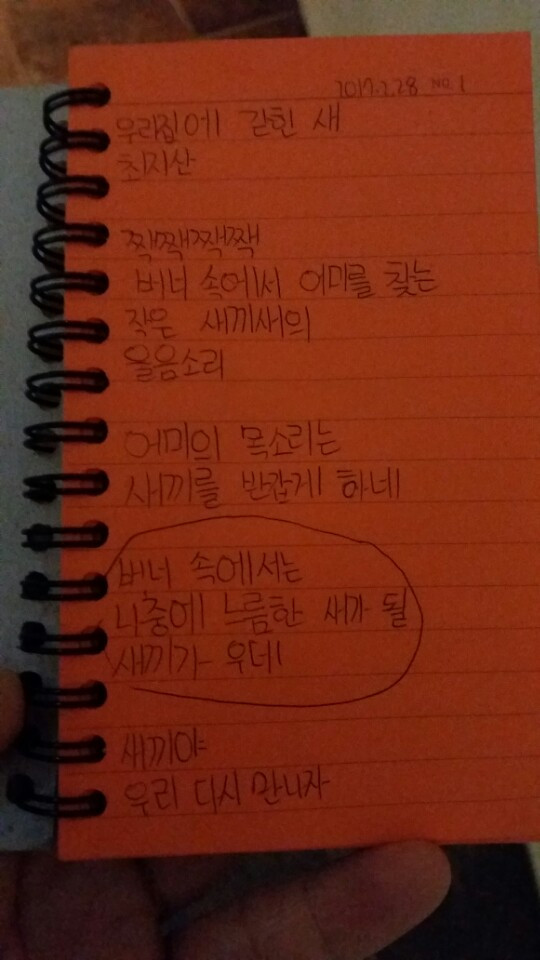 2017.2.28 No.1
우리집에 갇힌 새
최지산
짹짹짹짹
버너 속에서 어미를 찾는
작은 새끼새의
울음소리
어미의 목소리는
새끼를 반갑게 하네
버너 속에서는
나중에 늠름한 새가 될
새끼가 우네
새끼야
우리 다시 만나자